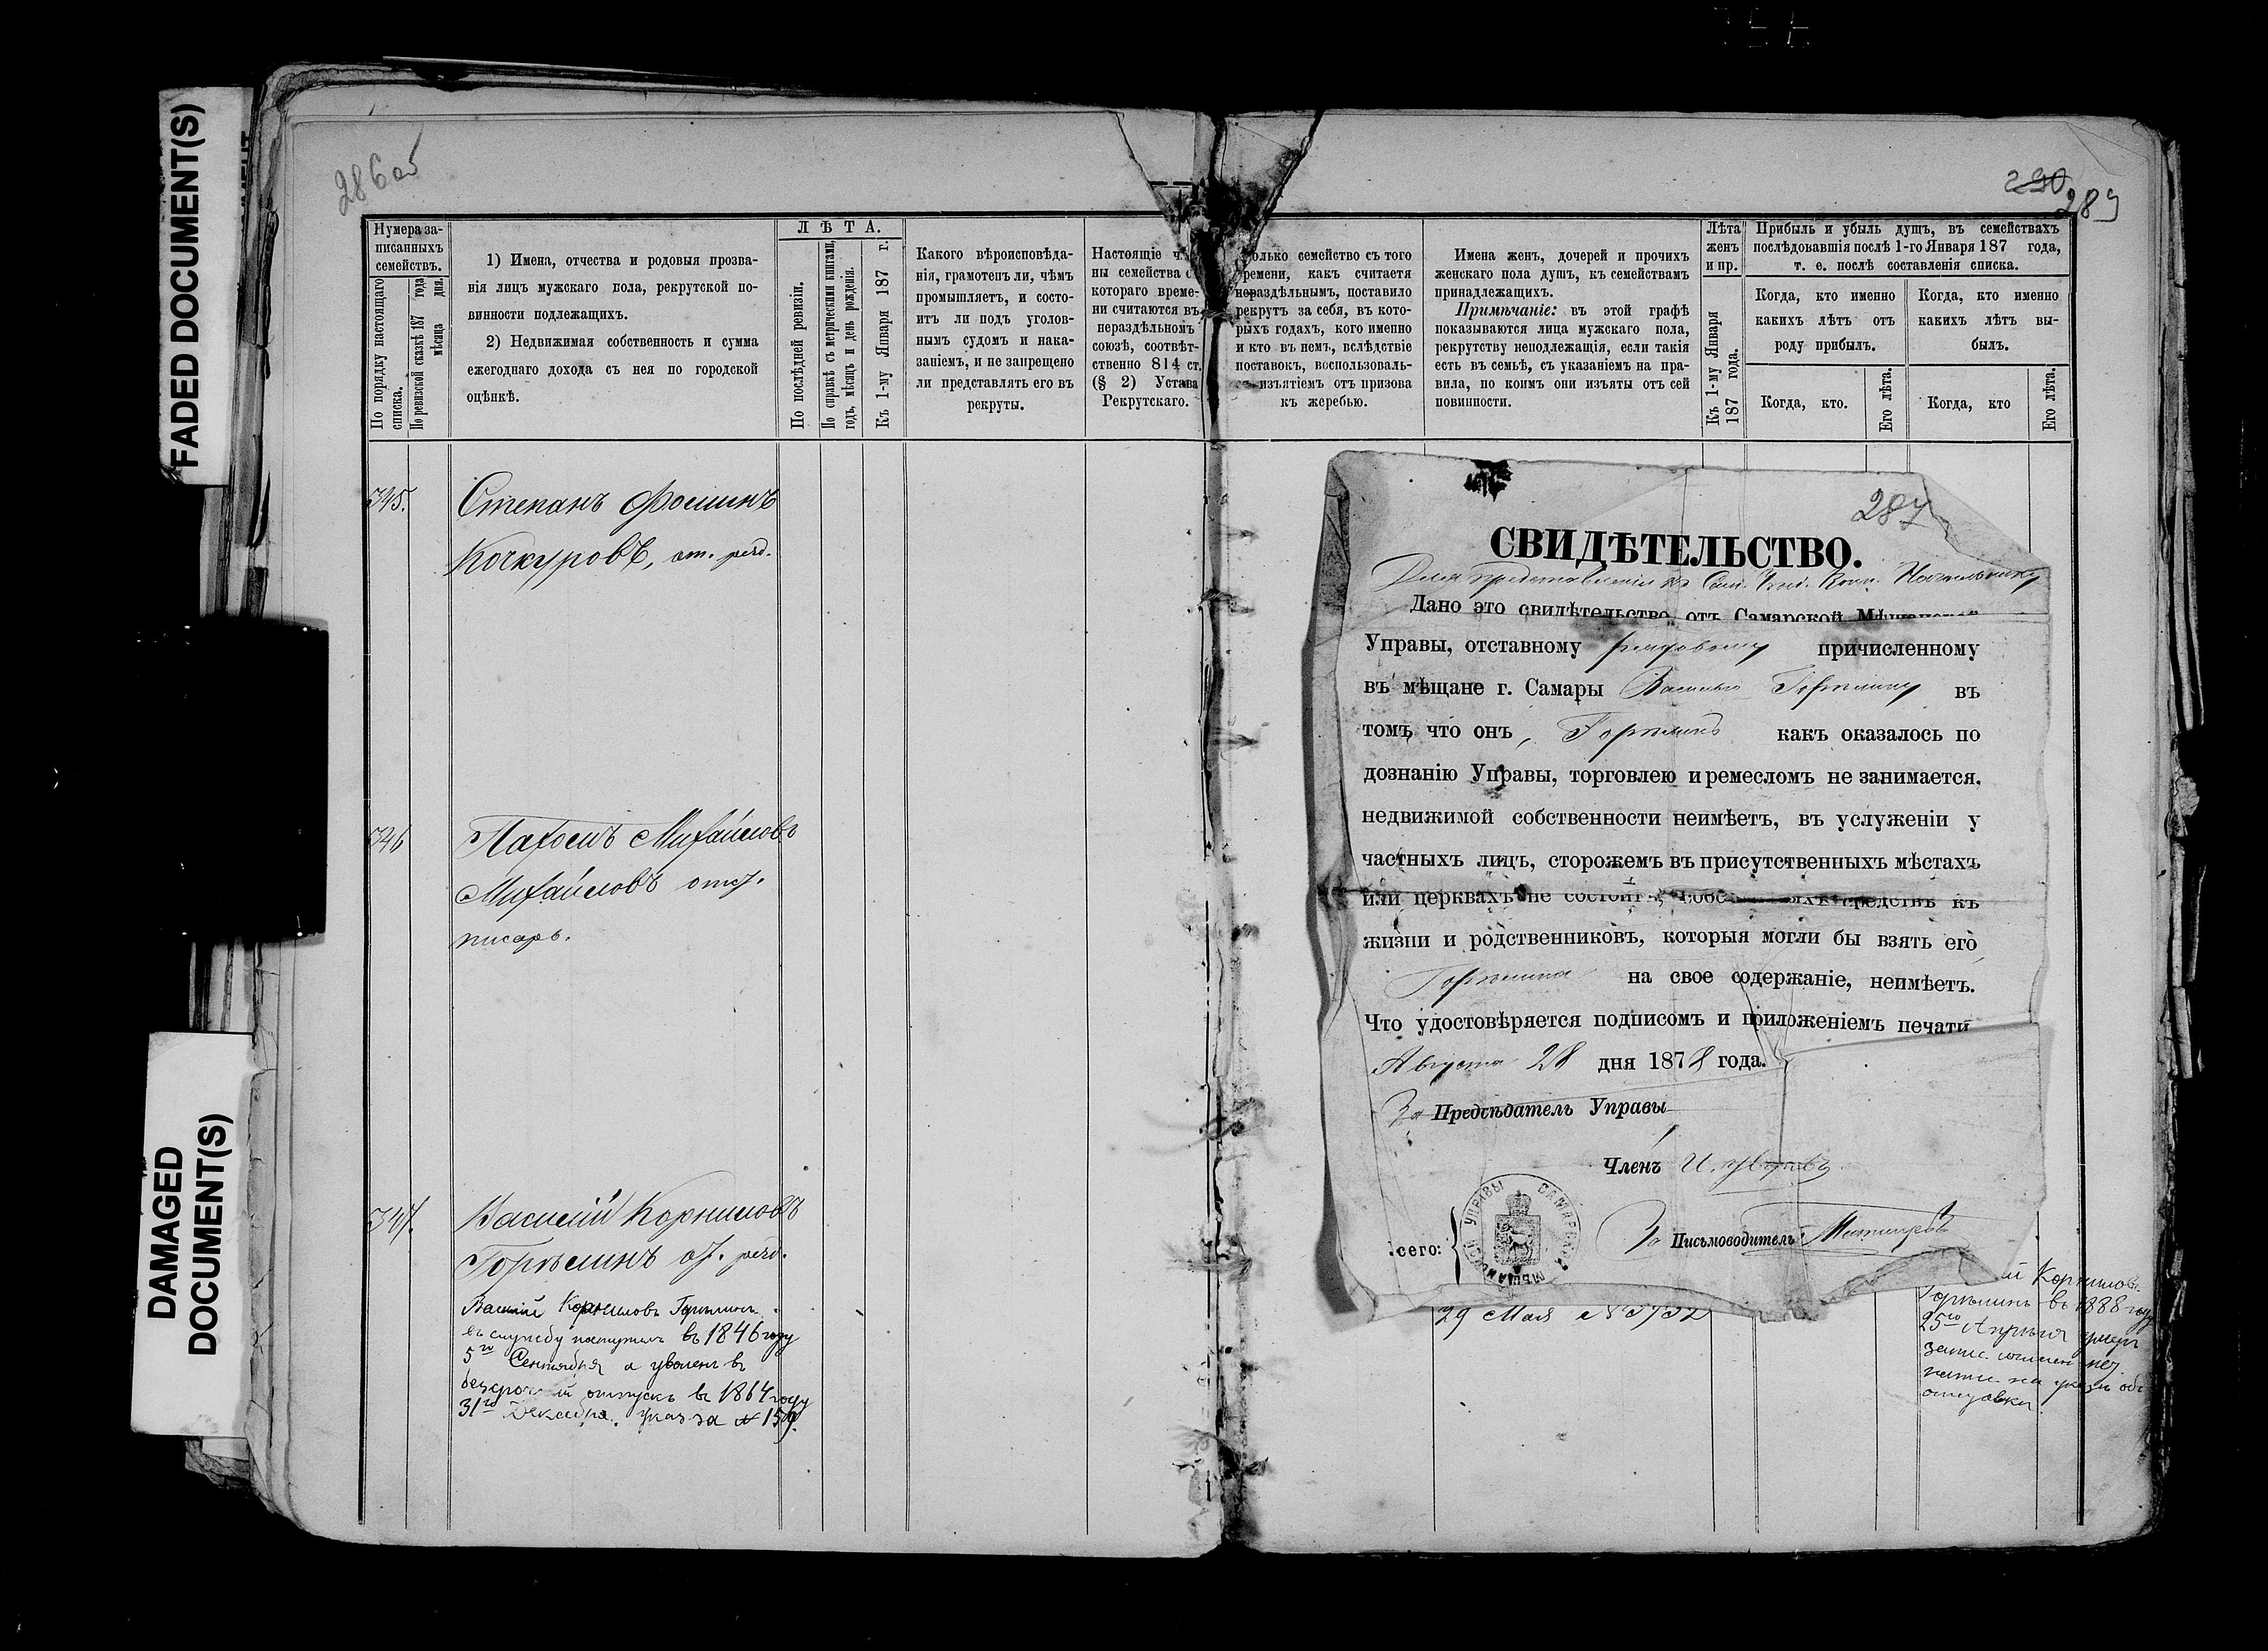 FADED DOCUMENT(S)
DAMAGED
DOCUMENT(S)
286 об
Нумера за-
писанныхъ
семействъ.
По порядку настоящаго
списка.
По ревизской сказкѣ 187 года
мѣсяца дня.
1) Имена, отчества и родовыя прозва-
нія лицъ мужскаго пола, рекрутской по-
винности подлежащихъ.
2) Недвижимая собственность и сумма
ежегоднаго дохода съ нея по городской
оцѣнкѣ.
ЛѢТА.
По послѣдней ревизіи.
По справкѣ съ метрическими книгами,
годъ, мѣсяцъ и день рожденія.
Къ 1-му Января 187 г.
Какого вѣроисповѣда-
нія, грамотенъ ли, чѣмъ
промышляетъ, и состо-
итъ ли подъ уголов-
нымъ судомъ и нака-
заніемъ, и не запрещено
ли представлять его въ
рекруты.
Настоящіе
ны семейства
котораго време-
ни считаются въ
нераздѣльномъ
союзѣ, соотвѣт-
ственно 814 ст.
(§ 2) Устава
Рекрутскаго.
345.
Степанъ Фоминъ
Кочкуровъ, от. ряд.
346
Пахомъ Михайловъ
Михайловъ отст.
писарь.
347.
Василій Корниловъ
Горѣлинъ от. ряд.
Василій Корниловъ Горѣлинъ
въ службу поступилъ въ 1846 году
5го Сентября а уволенъ въ
отпускъ въ 1864 году
31го Декабря. указ за №
290
289
семейство съ того
времени, какъ считается
нераздѣльнымъ, поставило
рекрутъ за себя, въ кото-
рыхъ годахъ, кого именно
и кто въ немъ, вслѣдствіе
поставокъ, воспользоваль-
изъятіемъ отъ призова
къ жеребью.
Имена женъ, дочерей и прочихъ
женскаго пола душъ, къ семействамъ
принадлежащихъ.
Примѣчаніе: въ этой графѣ
показываются лица мужскаго пола,
рекрутству неподлежащія, если такія
есть въ семьѣ, съ указаніемъ на пра-
вила, по коимъ они изъяты отъ сей
повинности.
Лѣта
женъ
и пр.
Къ 1-му Января
187 года.
Прибыль и убыль душъ, въ семействахъ
послѣдовавшія послѣ 1-го Января 187 года,
т. е. послѣ составленія списка.
Когда, кто именно
какихъ лѣтъ отъ
роду прибылъ.
Когда, кто именно
какихъ лѣтъ вы-
былъ.
Когда, кто.
Его лѣта.
Когда, кто
Его лѣта.
287
СВИДѢТЕЛЬСТВО.
Для представленія въ Сам. Воин. Начальнику
Дано это свидѣтельство отъ Самарской Мѣщанской
Управы, отставному рядовому причисленному
въ мѣщане г. Самары Василью Горѣлину въ
томъ что онъ, Горѣлинъ какъ оказалось по
дознанію Управы, торговлею и ремесломъ не занимается,
недвижимой собственности неимѣетъ, въ услуженіи у
частныхъ лицъ, сторожемъ въ присутственныхъ мѣстахъ
или церквахъ не состоитъ, средствъ къ
жизни и родственниковъ, которыя могли бы взять его
Горѣлина на свое содержаніе, неимѣетъ.
Что удостовѣряется подписомъ и приложеніемъ печати
Августа 28 дня 1878 года.
За Предсѣдатель Управы
Членъ
За Письмоводитель
САМАРСКОЙ МѢЩАНСКОЙ УПРАВЫ
сего:
29 Мая №
й Корнилов
Горѣлинъ въ 1888 году
25го Апрѣля умеръ